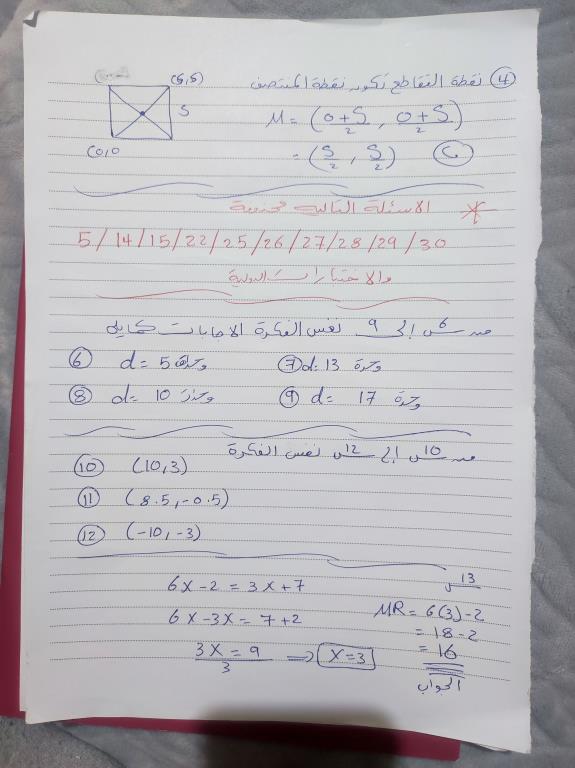 ④ نقطة التقاطع تكون نقطة المنتصف
(5,5)
5
(0,0
M = (0+5/2 , 0+5/2)
= (5/2 , 5/2) C
* الاسئلة التالية محذوفة
5/14/15/22/25/26/27/28/29/30
والاختبارات الدولية
من س6 إلى 9 نفس الفكرة الاجابات كمايلي
⑥ d= 5 وحدة ⑦ d= 13 وحدة
⑧ d= 10 وحدة ⑨ d= 17 وحدة
من س10 إلى س12 نفس الفكرة
⑩ (10,3)
⑪ (8.5,-0.5)
⑫ (-10,-3)
س13
6x-2 = 3x+7
6x-3x = 7+2
3x = 9/3 ⇒ x=3
MR = 6(3)-2
= 18-2
= 16
الجواب